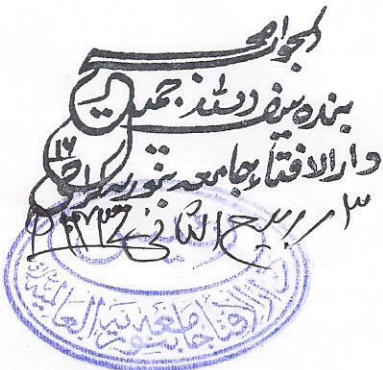 الجواب صحیح
بندہ سیف اللہ جمیل
دارالافتاء جامعہ بنوریہ کراچی ۱۶
۳ ربیع الثانی
دارالافتاء جامعہ بنوریہ العالمیہ